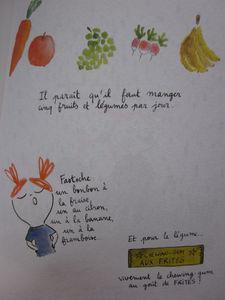 Il paraît qu'il faut manger
cinq fruits et légumes par jour.
Fastoche :
un bonbon à
la fraise,
un au citron,
un à la banane,
un à la
framboise.
Et pour le légume...
CHEWING-GUM
AUX FRITES
vivement le chewing gum
au goût de FRITES !